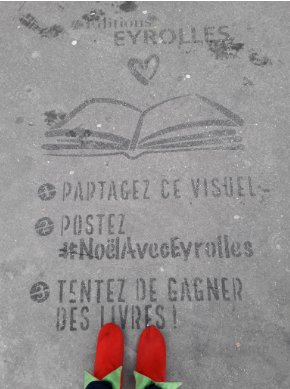 #éditions
EYROLLES
1 PARTAGEZ CE VISUEL
2 POSTEZ
#NoëlAvecEyrolles
3 TENTEZ DE GAGNER
DES LIVRES !